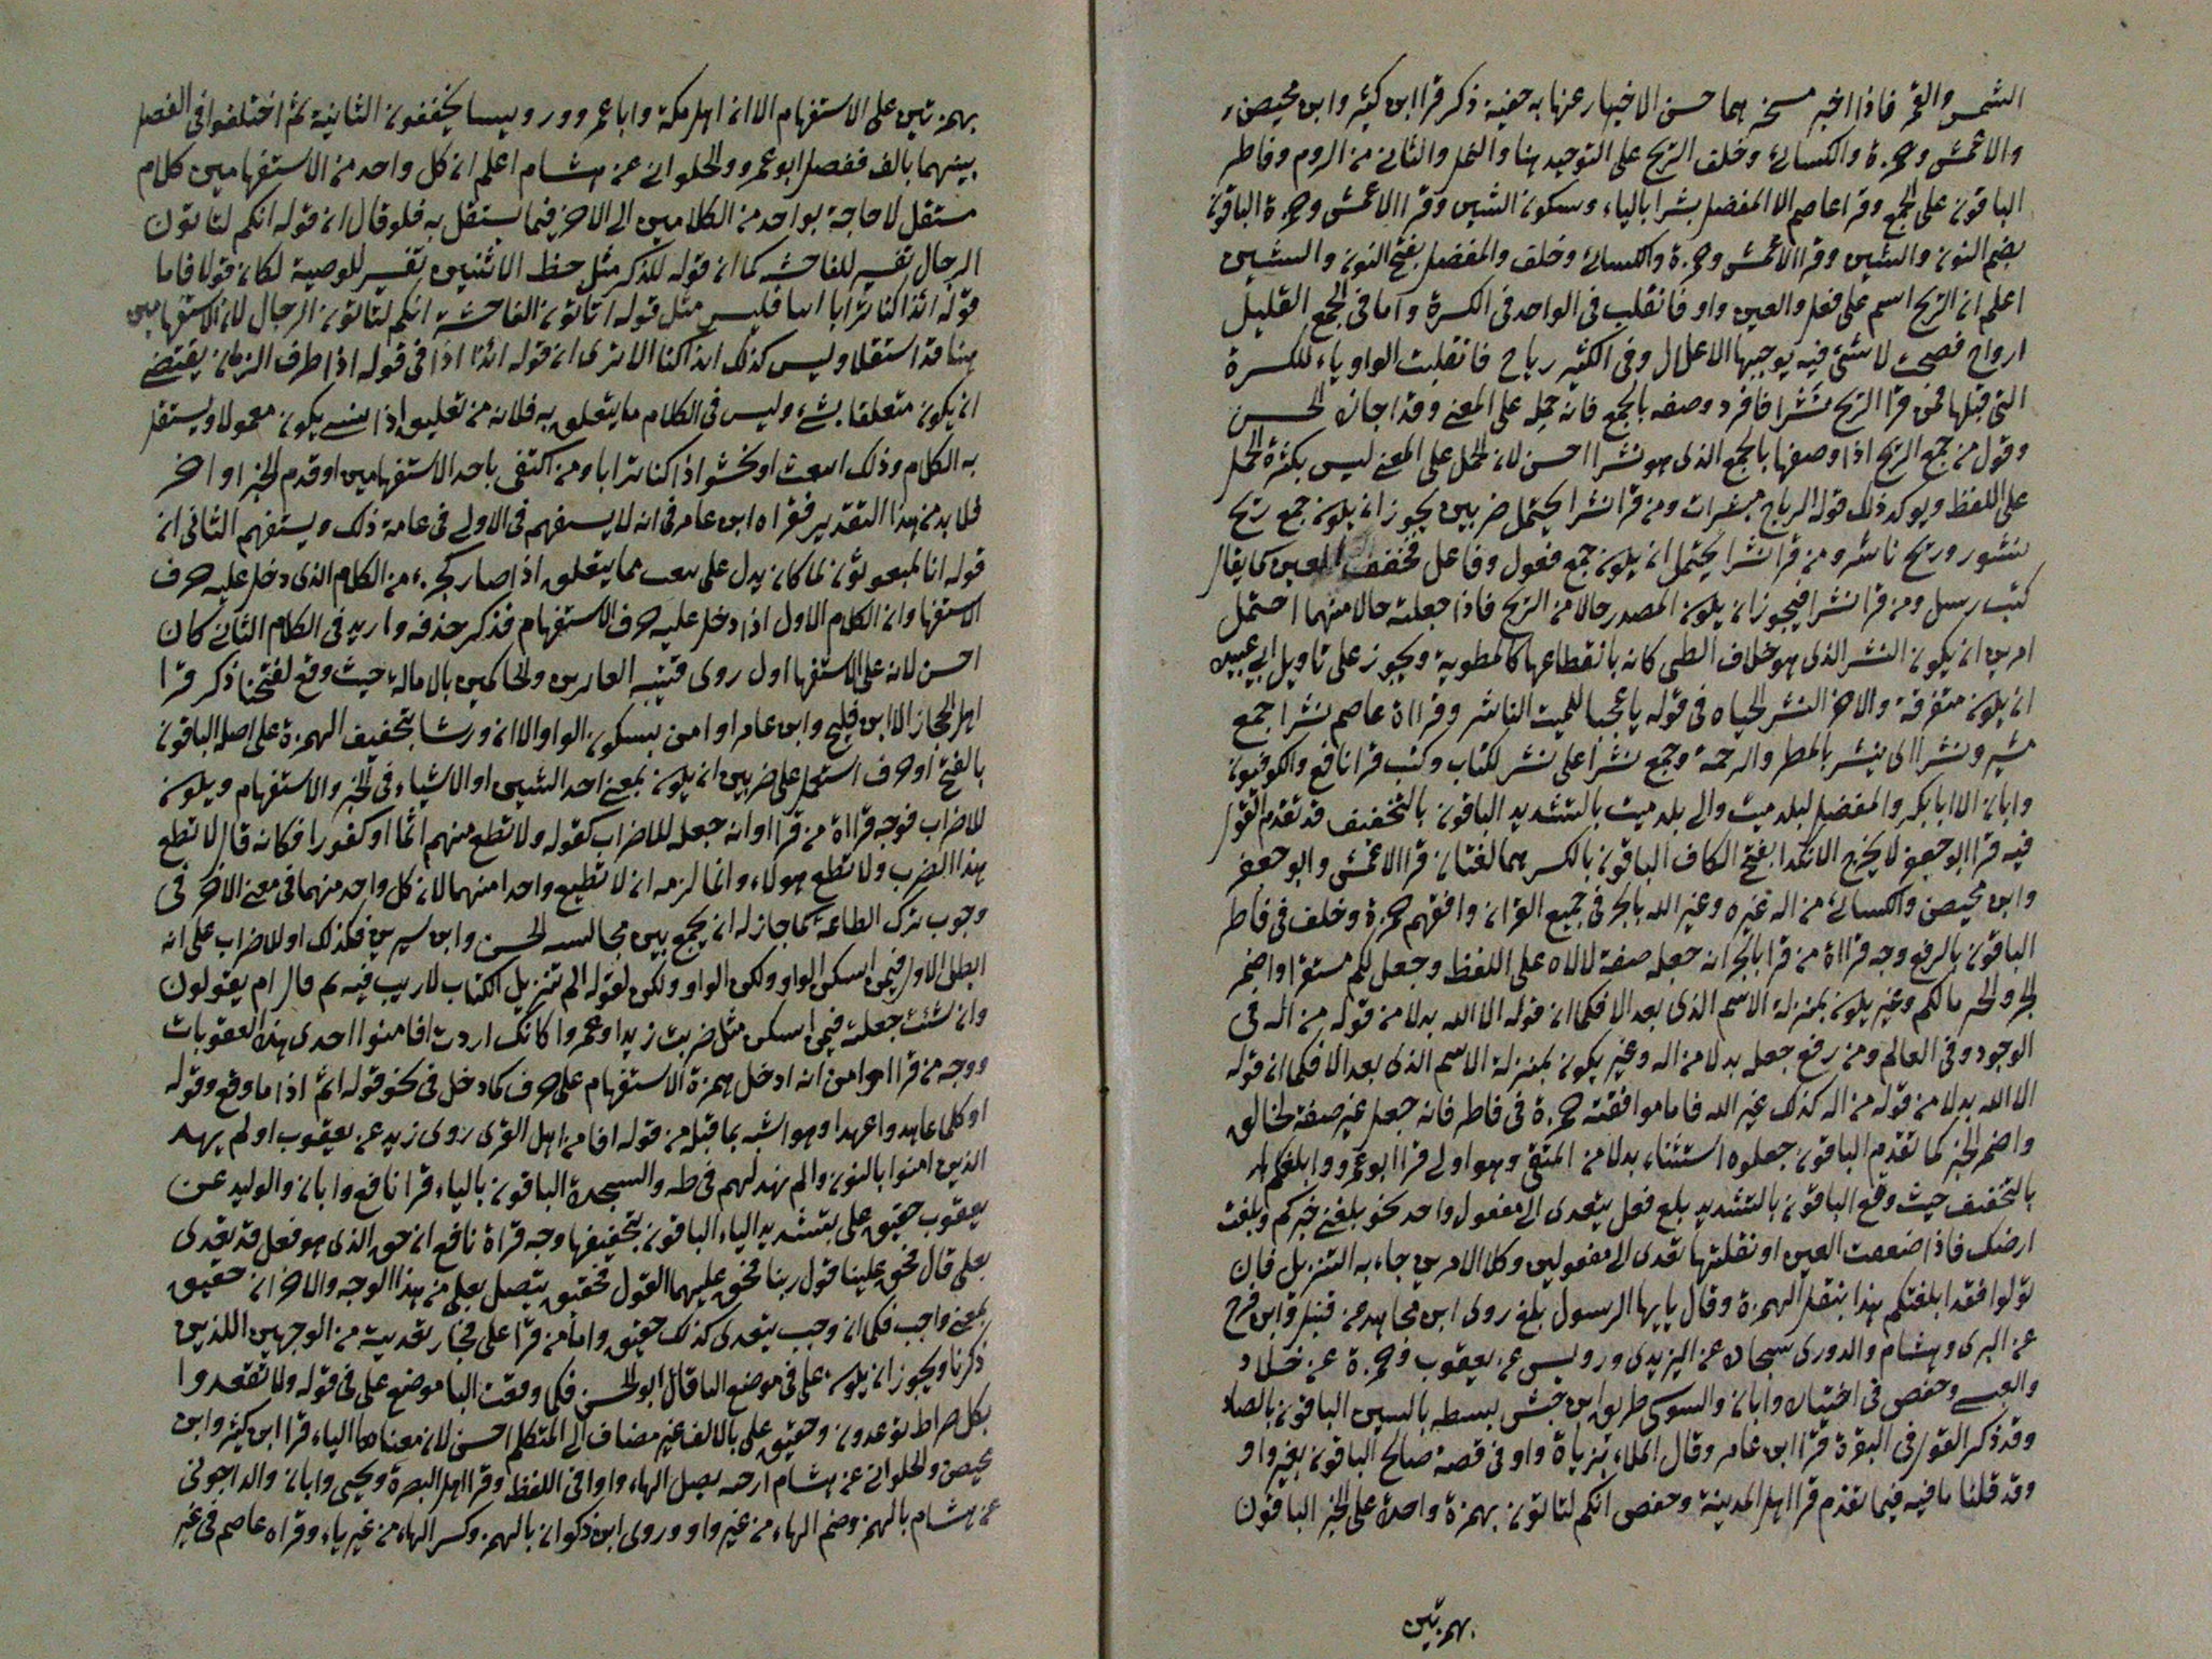 الشمس والقمر فاذا اخبر مسخر بهما حسن الاخبار عنها به خفية ذكر قرا ابن كثير وابن محيصن
والاعمش وحمزة والكسائي وخلف الريح على التوحيد هنا والنمل والثاني من الروم وفاطر
الباقون على الجمع وقرا عاصم الا المفضل بشرا بالياء وسكون الشين وقرا الاعمش وحمزة الباقون
بضم النون والشين وقرا الاعمش وحمزة والكسائي وخلف والمفضل بفتح النون والشين
اعلم ان الريح اسم على فعل والعين واو فانقلب في الواحد في الكسرة واما في الجمع القليل
ارواح فصحت لا شئ فيه يوجبها الاعلال وفي الكثير رياح فانقلبت الواو ياء للكسرة
التي قبلها فمن قرا الريح نشرا فافرد وصفه بالجمع فانه حمله على المعنى وقد اجاز الحسن
وقول من جمع الريح اذا وصفها بالجمع الذي هو نشرا احسن لان الحمل على المعنى ليس بكثرة الحمل
على اللفظ ويوكد ذلك قوله الرياح مبشرات ومن قرا نشرا يحتمل ضربين يجوز ان يكون جمع ريح
نشور وريح ناشر ومن قرا نشرا يحتمل ان يكون جمع فعول وفاعل فخفف العين كما يقال
كتب رسل ومن قرا نشرا فيجوز ان يكون المصدر حالا من الريح فاذا جعلته حالا منهما احتمل
امرين ان يكون النشر الذي هو خلاف الطي كانه بانقطاعها كالمطوية ويجوز على تاويل ابي عبيدة
ان يكون متفرقة والاخر النشر الحياه في قوله يا عجبا للميت الناشر وقراة عاصم بشرا جمع
بشير ونشرا اي ينشر بالمطر والرحمة وجمع نشرا على نشر لكتاب وكتب قرا نافع والكوفيون
وابان الا ابا بكر والمفضل لبلد ميت والى بلد ميت بالتشديد الباقون بالتخفيف قد تقدم القول
فيه قرا ابو جعفر لا يخرج الا نكدا بفتح الكاف الباقون بالكسر هما لغتان قرا الاعمش وابو جعفر
وابن محيصن والكسائي من اله غيره وغير الله بالجر في جميع القران وافقهم حمزة وخلف في فاطر
الباقون بالرفع وجه قراة من قرا بالجر انه جعله صفة لالاه على اللفظ وجعل لكم مستقرا واضمر
الجر والخبر مالكم وغير يكون بمنزلة الاسم الذي بعد الا فكما ان قوله الا الله بدلا من قوله من اله في
الوجود وفي العالم ومن رفع جعله بدلا من اله وغير يكون بمنزلة الاسم الذي بعد الا فكما ان قوله
الا الله بدلا من قوله من اله كذلك غير الله فاما موافقته حمزة في فاطر فانه جعل غير صفة لخالق
واضمر الخبر كما تقدم الباقون جعلوه استثناء بدلا من المنفي وهو اولى قرا ابو عمرو وابلغكم
بالتخفيف حيث وقع الباقون بالتشديد بلغ فعل يتعدى الى مفعول واحد نحو بلغني خبركم وبلغت
ارضك فاذا ضعفت العين او نقلتها تعدى الى مفعولين وكلا الامرين جاء به التنزيل فان
تولوا فقد ابلغتكم هذا بنقل الهمزة وقال يايها الرسول بلغ روى ابن مجاهد عن قنبل وابن فرح
عن البزي وهشام والدوري سجادة عن اليزيدي ورويس عن يعقوب وحمزة عن خلاد
والعبسي وحفص في اختياره وابان والسوسي طريق ابن حبش بسطه بالسين الباقون بالصاد
وقد ذكر القول في البقرة قرا ابن عامر وقال الملاء بزياة واو في قصة صالح الباقون بغير واو
وقد قلنا ما فيه فيما تقدم قرا اهل المدينة وحفص انكم لتاتون بهمزة واحدة على الخبر الباقون
بهمزتين
بهمزتين على الاستفهام الا ان اهل مكة وابا عمرو ورويسا يخففون الثانية ثم اختلفوا في الفصل
بينهما بالف ففصل ابو عمرو والحلواني عن هشام اعلم ان كل واحد من الاستفهامين كلام
مستقل لا حاجة بواحد من الكلامين الى الاخر فيما يستقل به فلو قال ان قوله انكم لتاتون
الرجال تفسير للفاحشه كما ان قوله للذكر مثل حظ الانثيين تفسير للوصية لكان قولا فاما
قوله ائذا كنا ترابا اانا فليس مثل قوله اتاتون الفاحشة انكم لتاتون الرجال لان الاستفهامين
هنا قد استقلا وليس كذلك ائذا كنا الا ترى ان قوله ائذا اذا في قوله اذا ظرف الزمان يقتضي
ان يكون متعلقا بشئ وليس في الكلام ما يتعلق به فلابد من تعليق اذا بشئ يكون معمولا ويستقل
به الكلام وذلك انبعث او نحشر اذا كنا ترابا ومن اكتفى باحد الاستفهامين او قدم الخبر او اخر
فلا بد من هذا التقدير فقراه ابن عامر في انه لا يستفهم في الاولى في عامة ذلك ويستفهم الثاني ان
قوله انا لمبعوثون لما كان يدل على نبعث مما يتعلق اذا صار كجزء من الكلام الذي دخل عليه حرف
الاستفها وان الكلام الاول اذا دخل عليه حرف الاستفهام فذكر حذفه واريد في الكلام الثاني كان
احسن لانه على الاستفها اول روى قتيبه الغابرين والحاكمين بالامالة حيث وقع لفتحنا ذكر قرا
اهل الحجاز الا ابن فليح وابن عامر او امن بسكون الواو الا ان ورشا بتخفيف الهمزة على اصله الباقون
بالفتح او حرف استعمل على ضربين ان يكون بمعنى احد الشيين او الاشياء في الخبر والاستفهام ويكون
للاضراب فوجه قراة من قرا او انه جعله للاضراب كقوله ولا تطع منهم اثما او كفورا فكانه قال لا تطع
هذا الضرب ولا تطع هولاء وانما لزمه ان لا تطيع واحدا منهما لان كل واحد منهما في معنى الاخر في
وجوب ترك الطاعة كما جاز له ان يجمع بين مجالسه الحسن وابن سيرين فكذلك او للاضراب على انه
ابطل الاول فيمن اسكن الواو ولكن الواو ولكن لقوله الم تنزيل الكتاب لا ريب فيه ثم قال ام يقولون
وان شئت جعلته فيمن اسكن مثل ضربت زيدا او عمروا كانك اردت افامنوا احدى هذه العقوبات
ووجه من قرا او امن انه ادخل همزة الاستفهام على حرف كما دخل في نحو قوله اثم اذا ما وقع وقوله
او كلما عاهدوا عهدا وهو اشبه بما قبله من قوله افامن اهل القرى روى زيد عن يعقوب اولم يهد
الذين امنوا بالنون والم نهد لهم في طه والسجدة الباقون بالياء قرا نافع وابان والوليد عن
يعقوب حقيق علي بتشديد الياء الباقون بتخفيفها وجه قراة نافع ان حق الذي هو فعل قد تعدى
بعلى قال فحق علينا قول ربنا فحق عليهما القول فحقيق يتصل بعلى من هذا الوجه والاخر ان حقيق
بمعنى واجب فكما ان وجب يتعدى كذلك حقيق واما من قرا على فجاز تعديته من الوجهين اللذين
ذكرنا ويجوز ان يكون على في موضع الباقال ابو الحسن فكما وقعت البا موضع على في قوله ولا تقعدوا
بكل صراط توعدون وحقيق على بالالف غير مضاف الى المتكلم احسن لان معناها الياء قرا ابن كثير وابن
محيصن والحلواني عن هشام ارجه بصل الهاء واوا في اللفظ وقرا اهل البصرة ويحيى وابان والداجوني
عن هشام بالهمز وضم الهاء من غير واو وروى ابن ذكوان بالهمز وكسر الهاء من غير ياء وقراه عاصم في غير